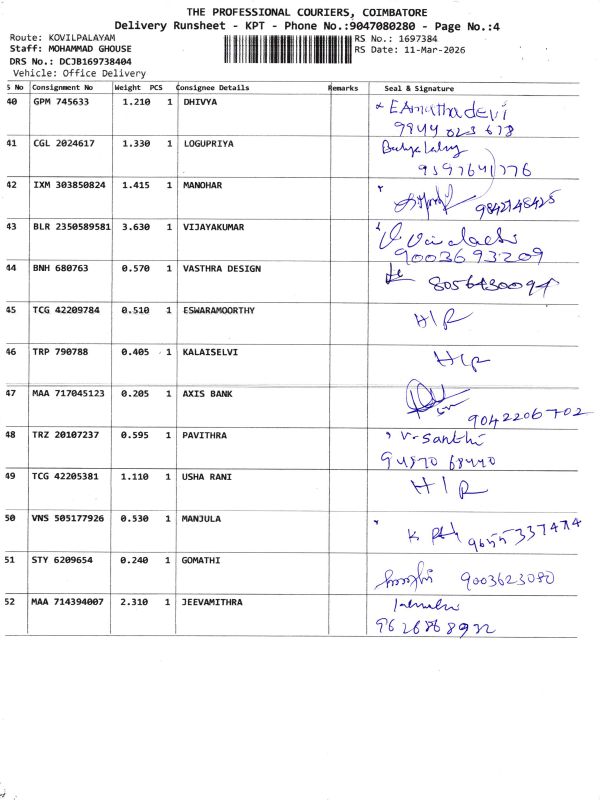 THE PROFESSIONAL COURIERS, COIMBATORE
Delivery Runsheet - KPT - Phone No.:9047080280 - Page No.:4
Route: KOVILPALAYAM RS No.: 1697384
Staff: MOHAMMAD GHOUSE RS Date: 11-Mar-2026
DRS No.: DCJB169738404
Vehicle: Office Delivery
S No Consignment No Weight PCS Consignee Details Remarks Seal & Signature
40 GPM 745633 1.210 1 DHIVYA
9944 023 678
41 CGL 2024617 1.330 1 LOGUPRIYA
9597641776
42 IXM 303850824 1.415 1 MANOHAR
9842748425
43 BLR 2350589581 3.630 1 VIJAYAKUMAR
9003693209
44 BNH 680763 0.570 1 VASTHRA DESIGN
8056430094
45 TCG 42209784 0.510 1 ESWARAMOORTHY
H/R
46 TRP 790788 0.405 1 KALAISELVI
H/R
47 MAA 717045123 0.205 1 AXIS BANK
9042206702
48 TRZ 20107237 0.595 1 PAVITHRA V-Santhi
94870 68440
49 TCG 42205381 1.110 1 USHA RANI H/R
50 VNS 505177926 0.530 1 MANJULA
51 STY 6209654 0.240 1 GOMATHI
9003623080
52 MAA 714394007 2.310 1 JEEVAMITHRA